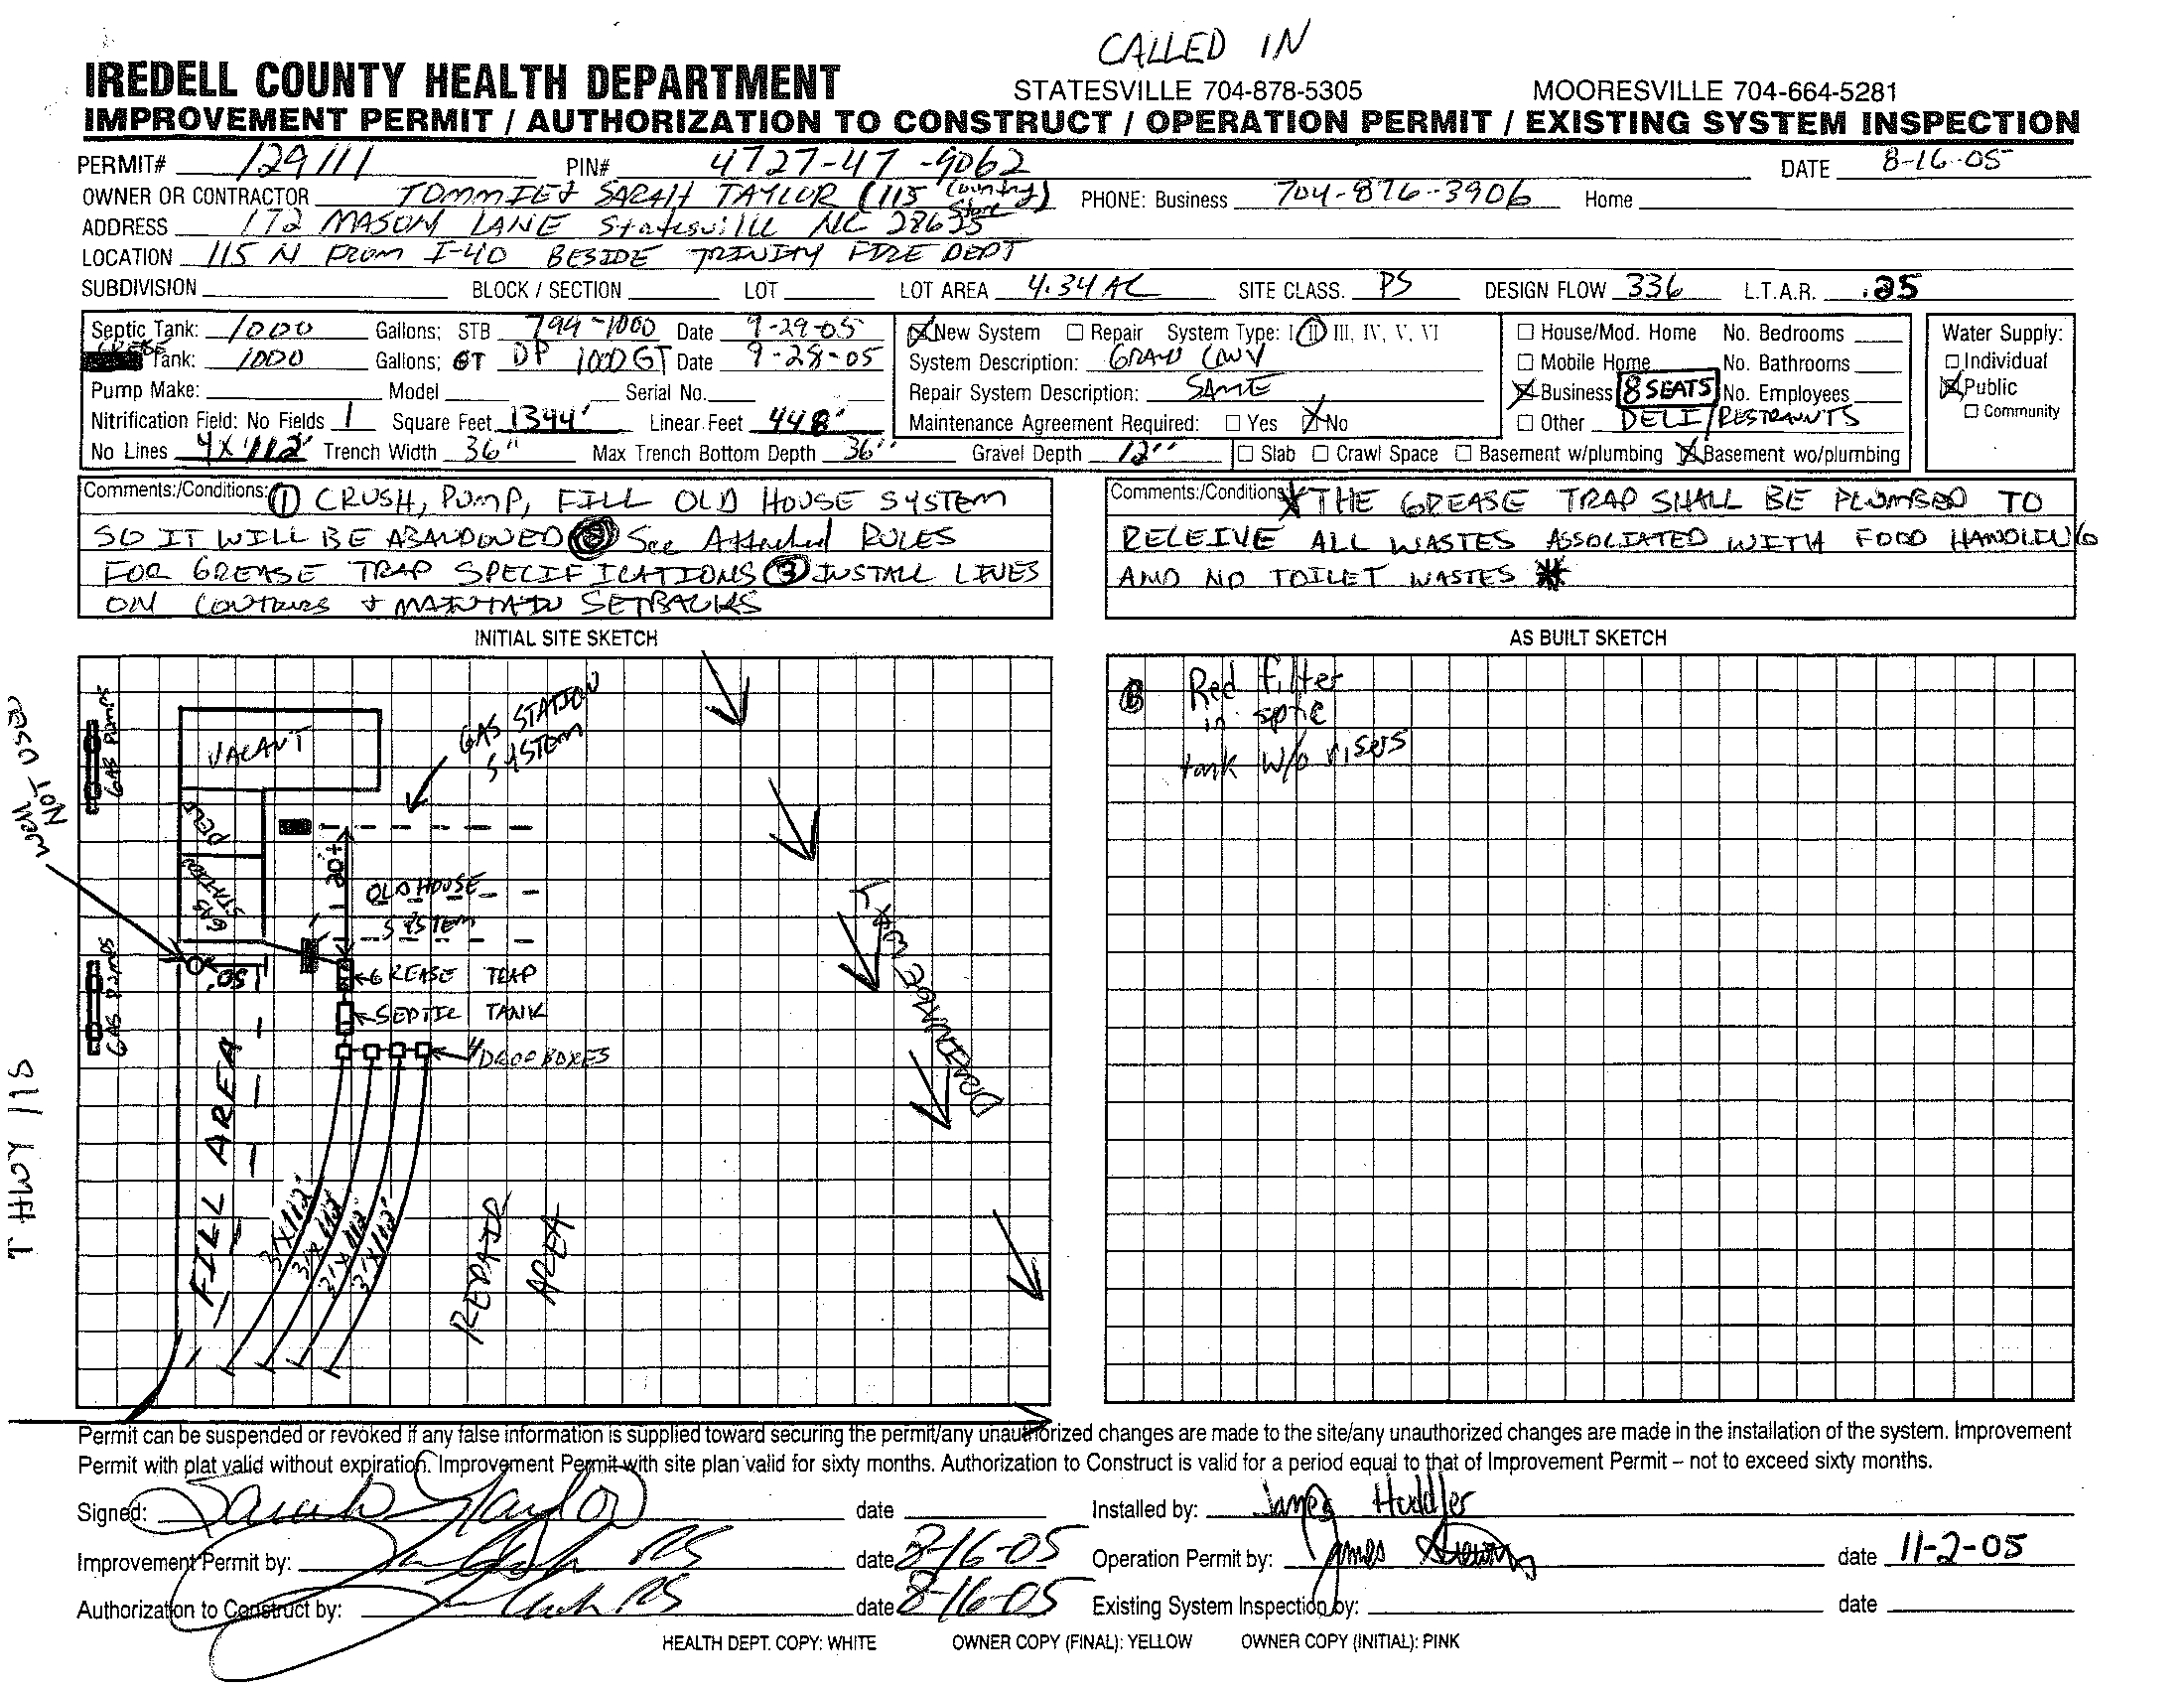 CALLED IN
IREDELL COUNTY HEALTH DEPARTMENT STATESVILLE 704-878-5305 MOORESVILLE 704-664-5281
IMPROVEMENT PERMIT / AUTHORIZATION TO CONSTRUCT / OPERATION PERMIT / EXISTING SYSTEM INSPECTION
PERMIT# 129111 PIN# 4727-47-9062 DATE 8-16-05
OWNER OR CONTRACTOR TOMMIE & SARAH TAYLOR (115 Country Store) PHONE: Business 704-876-3906 Home
ADDRESS 172 MASON LANE Statesville NC 28625
LOCATION 115 N FROM I-40 BESIDE TRINITY FIRE DEPT
SUBDIVISION BLOCK / SECTION LOT LOT AREA 4.34 AC SITE CLASS. PS DESIGN FLOW 336 L.T.A.R. .25
Septic Tank: 1000 Gallons; STB 794-1000 Date 9-29-05
GREASE Tank: 1000 Gallons; GT DP 1000 GT Date 9-28-05
Pump Make: Model Serial No.
Nitrification Field: No Fields 1 Square Feet 1344' Linear Feet 448'
No Lines 4X112' Trench Width 36" Max Trench Bottom Depth 36" Gravel Depth 12"
New System Repair System Type: I II III, IV, V, VI
System Description: GRAV CONV
Repair System Description: SAME
Maintenance Agreement Required: Yes No
Slab Crawl Space Basement w/plumbing Basement wo/plumbing
House/Mod. Home No. Bedrooms
Mobile Home No. Bathrooms
Business 8 SEATS No. Employees
Other DELI/RESTRAUNTS
Water Supply:
Individual
Public
Community
Comments:/Conditions: ① CRUSH, PUMP, FILL OLD HOUSE SYSTEM
SO IT WILL BE ABANDONED ② See Attached RULES
FOR GREASE TRAP SPECIFICATIONS ③ INSTALL LINES
ON CONTOURS + MAINTAIN SETBACKS
Comments:/Conditions: * THE GREASE TRAP SHALL BE PLUMBED TO
RECEIVE ALL WASTES ASSOCIATED WITH FOOD HANDLING
AND NO TOILET WASTES *
INITIAL SITE SKETCH
GAS PUMPS
VACANT
GAS STATION
SYSTEM
WELL
NOT USED
DELI
GAS
STATION
20'+
OLD HOUSE
SYSTEM
50'
GAS PUMPS
GREASE TRAP
SEPTIC TANK
4 DROP BOXES
DRAINAGE WAY
FILL AREA
HWY 115
3'X112'
3'X112'
3'X112'
3'X112'
REPAIR
AREA
AS BUILT SKETCH
Red filter
in sptic
tank w/o risers
Permit can be suspended or revoked if any false information is supplied toward securing the permit/any unauthorized changes are made to the site/any unauthorized changes are made in the installation of the system. Improvement
Permit with plat valid without expiration. Improvement Permit with site plan valid for sixty months. Authorization to Construct is valid for a period equal to that of Improvement Permit – not to exceed sixty months.
Signed: Sarah Taylor date Installed by: James Huddler
Improvement Permit by: RS date 8-16-05 Operation Permit by: James date 11-2-05
Authorization to Construct by: RS date 8-16-05 Existing System Inspection by: date
HEALTH DEPT. COPY: WHITE OWNER COPY (FINAL): YELLOW OWNER COPY (INITIAL): PINK